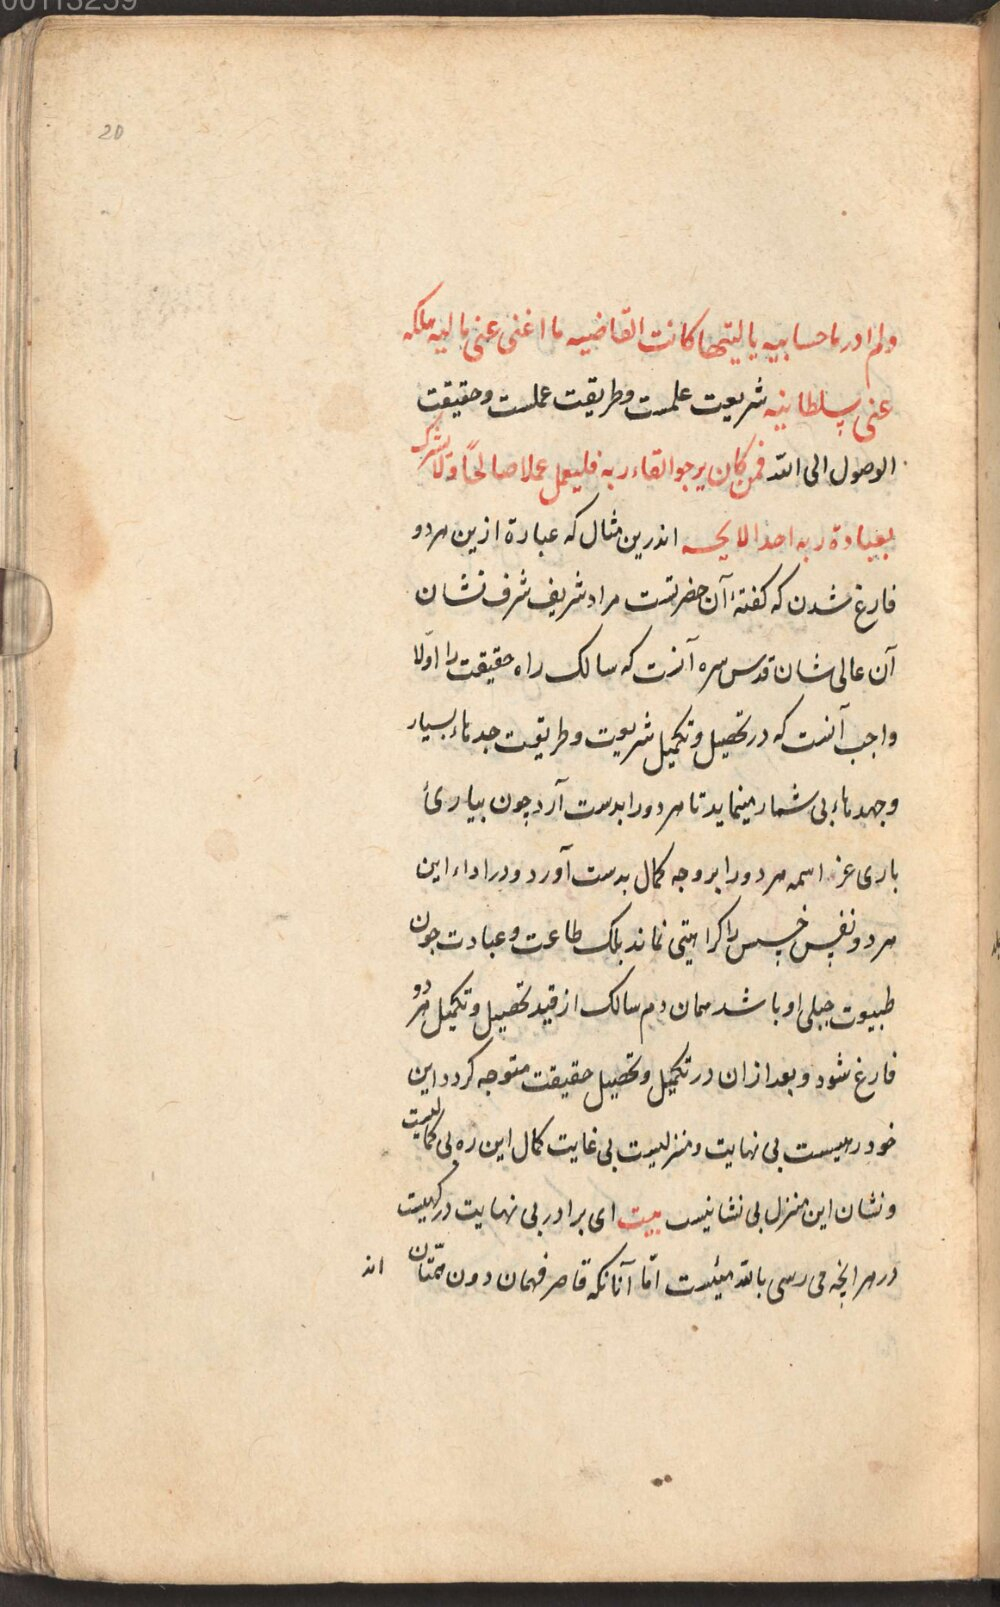 00113259
20
ولم ادر ما حسابیه یا لیتها کانت القاضیه ما اغنی عنی مالیه هلک
عنی سلطانیه شریعت علمست و طریقت عملست و حقیقت
الوصول الی الله فمن کان یرجوا لقاء ربه فلیعمل عملا صالحًا ولا یشرک
بعبادة ربه احدا الایه اندرین مثال که عبارة ازین هردو
فارغ شدن که کفتهٔ آن حضرتست مراد شریف شرف نشان
آن عالی شان قدس سره آنست که سالک راه حقیقت را اوّلا
واجب آنست که در تحصیل و تکمیل شریعت و طریقت جدهاء بسیار
وجهدهاء بی شمار مینماید تا هردو را بدست آرد چون بیارئ
باری عز اسمه هردو را بر وجه کمال بدست آورد و در اداء این
هردو نفس خسیس را کراهیتی نماند بلک طاعت و عبادت چون
طبیعت جبلی او باشد همان دم سالک از قید تحصیل و تکمیل هر دو
فارغ شود و بعد ازان در تکمیل و تحصیل حقیقت متوجه کردد این
خود رهیست بی نهایت و منزلیست بی غایت کمال این ره بی کمالیست
و نشان این منزل بی نشانیست بیت ای برادر بی نهایت درکهیست
در هر انچه می رسی بالله مئیست امّا آنانکه قاصر فهمان دون همّتان
اند